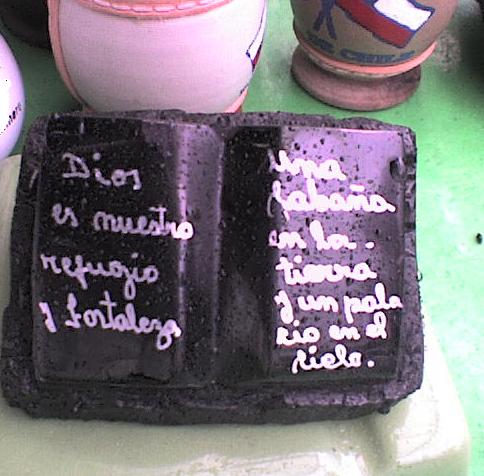 Dios
es nuestro
refugio
y fortaleza
una
cabaña
en la.
tierra
y un pala
cio en el
cielo.
DE CHILE